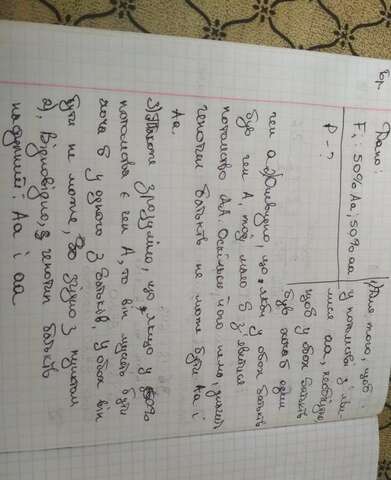 Дано:
F₁: 50% Аа; 50% аа
Р - ?
1) Для того, щоб
у потомків з'яви-
лися аа, необхідно
щоб у обох батьків
був хоча б один
ген а. 2) Очевидно, що якби у обох батьків
був ген А, тоді мало б з'явитися
потомство АА. Оскільки його нема, значить
генотип батьків не може бути Аа і
Аа.
3) Також зрозуміло, що якщо у 50%
потомства є ген А, то він мусить бути
хоча б у одного з батьків. У обох він
бути не може, бо згідно з пунктом
2). Відповідно, генотип батьків
наступний: Аа і аа